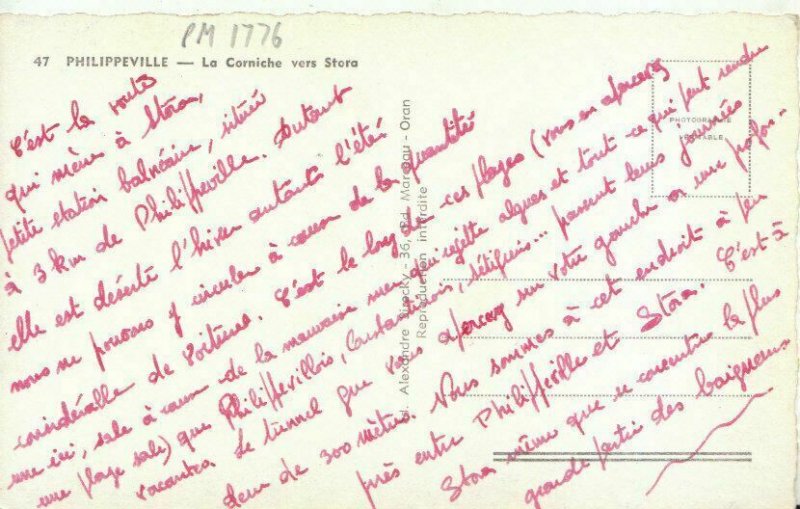 PM 1776
47 PHILIPPEVILLE — La Corniche vers Stora
PHOTOGRAPHIE
VÉRITABLE
Alexandre - 36, Bd. Marceau - Oran
Reproduction interdite
C'est la route
qui mène à Stora,
petite station balnéaire, située
à 3 km de Philippeville. Autant
elle est déserte l'hiver autant l'été
nous ne pouvons y circuler à cause de la quantité
considérable de voitures. C'est le long de ces plages (vous en apercevez
une ici, sale à cause de la mauvaise mer qui rejette algues et tout ce qui peut rendre
une plage sale) que Philippevillois, Constantinois, Sétifiens... passent leurs journées
vacantes. Le tunnel que vous apercevez sur votre gauche a une profon-
deur de 300 mètres. Nous sommes à cet endroit à peu
près entre Philippeville et Stora. C'est à
Stora même que se concentre la plus
grande partie des baigneurs